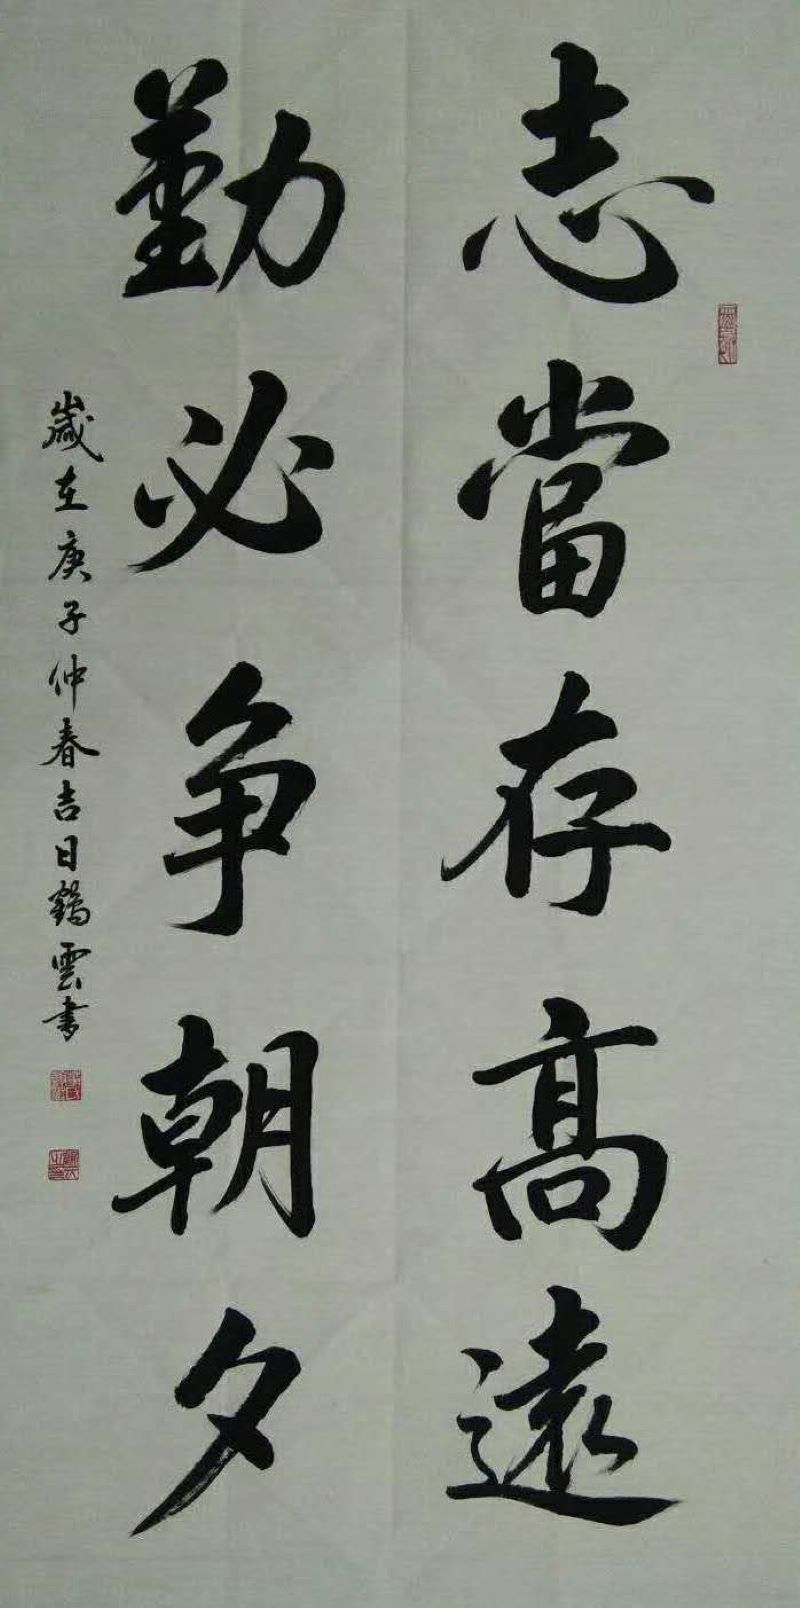 志當存高遠
勤必争朝夕
歲在庚子仲春吉日鶴雲書